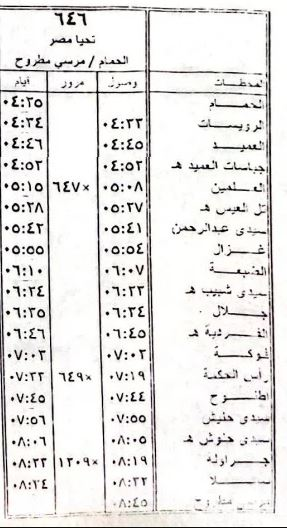 ٦٤٦
تحيا مصر
الحمام / مرسي مطروح
المحطات وصول مرور قيام
الحمام ٠٤:٢٥
الرويسات ٠٤:٣٣ ٠٤:٣٤
العميد ٠٤:٤٥ ٠٤:٤٦
جباسات العميد هـ ٠٤:٥٢ ٠٤:٥٣
العلمين ٠٥:٠٨ ×٦٤٧ ٠٥:١٥
تل العيس هـ ٠٥:٢٧ ٠٥:٢٨
سيدى عبدالرحمن ٠٥:٤١ ٠٥:٤٢
غزال ٠٥:٥٤ ٠٥:٥٥
الضبعة ٠٦:٠٧ ٠٦:١٠
سيدى شبيب هـ ٠٦:٢٣ ٠٦:٢٤
جلال ٠٦:٣٤ ٠٦:٣٥
الفردية هـ ٠٦:٤٥ ٠٦:٤٦
فوكة ٠٧:٠٢ ٠٧:٠٣
رأس الحكمة ٠٧:١٩ ×٦٤٩ ٠٧:٣٣
اطنوح ٠٧:٤٤ ٠٧:٤٥
سيدى حنيش ٠٧:٥٥ ٠٧:٥٦
سيدى حنوش هـ ٠٨:٠٥ ٠٨:٠٦
جراوله ٠٨:١٩ ×١٣٠٩ ٠٨:٢٣
٠٨:٣٣ ٠٨:٣٤
مرسي مطروح ٠٨:٤٥